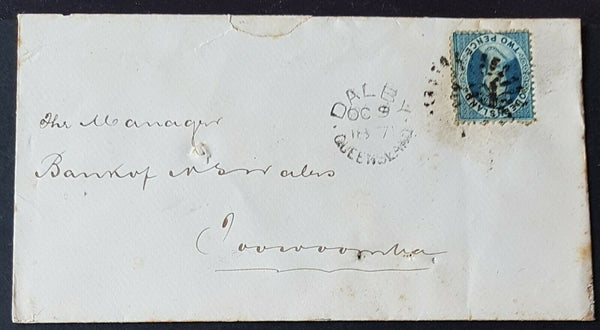 The Manager
Bank of N S Wales
Toowoomba
DALBY
OC 9
1871
QUEENSLAND
QUEENSLAND
TWO PENCE